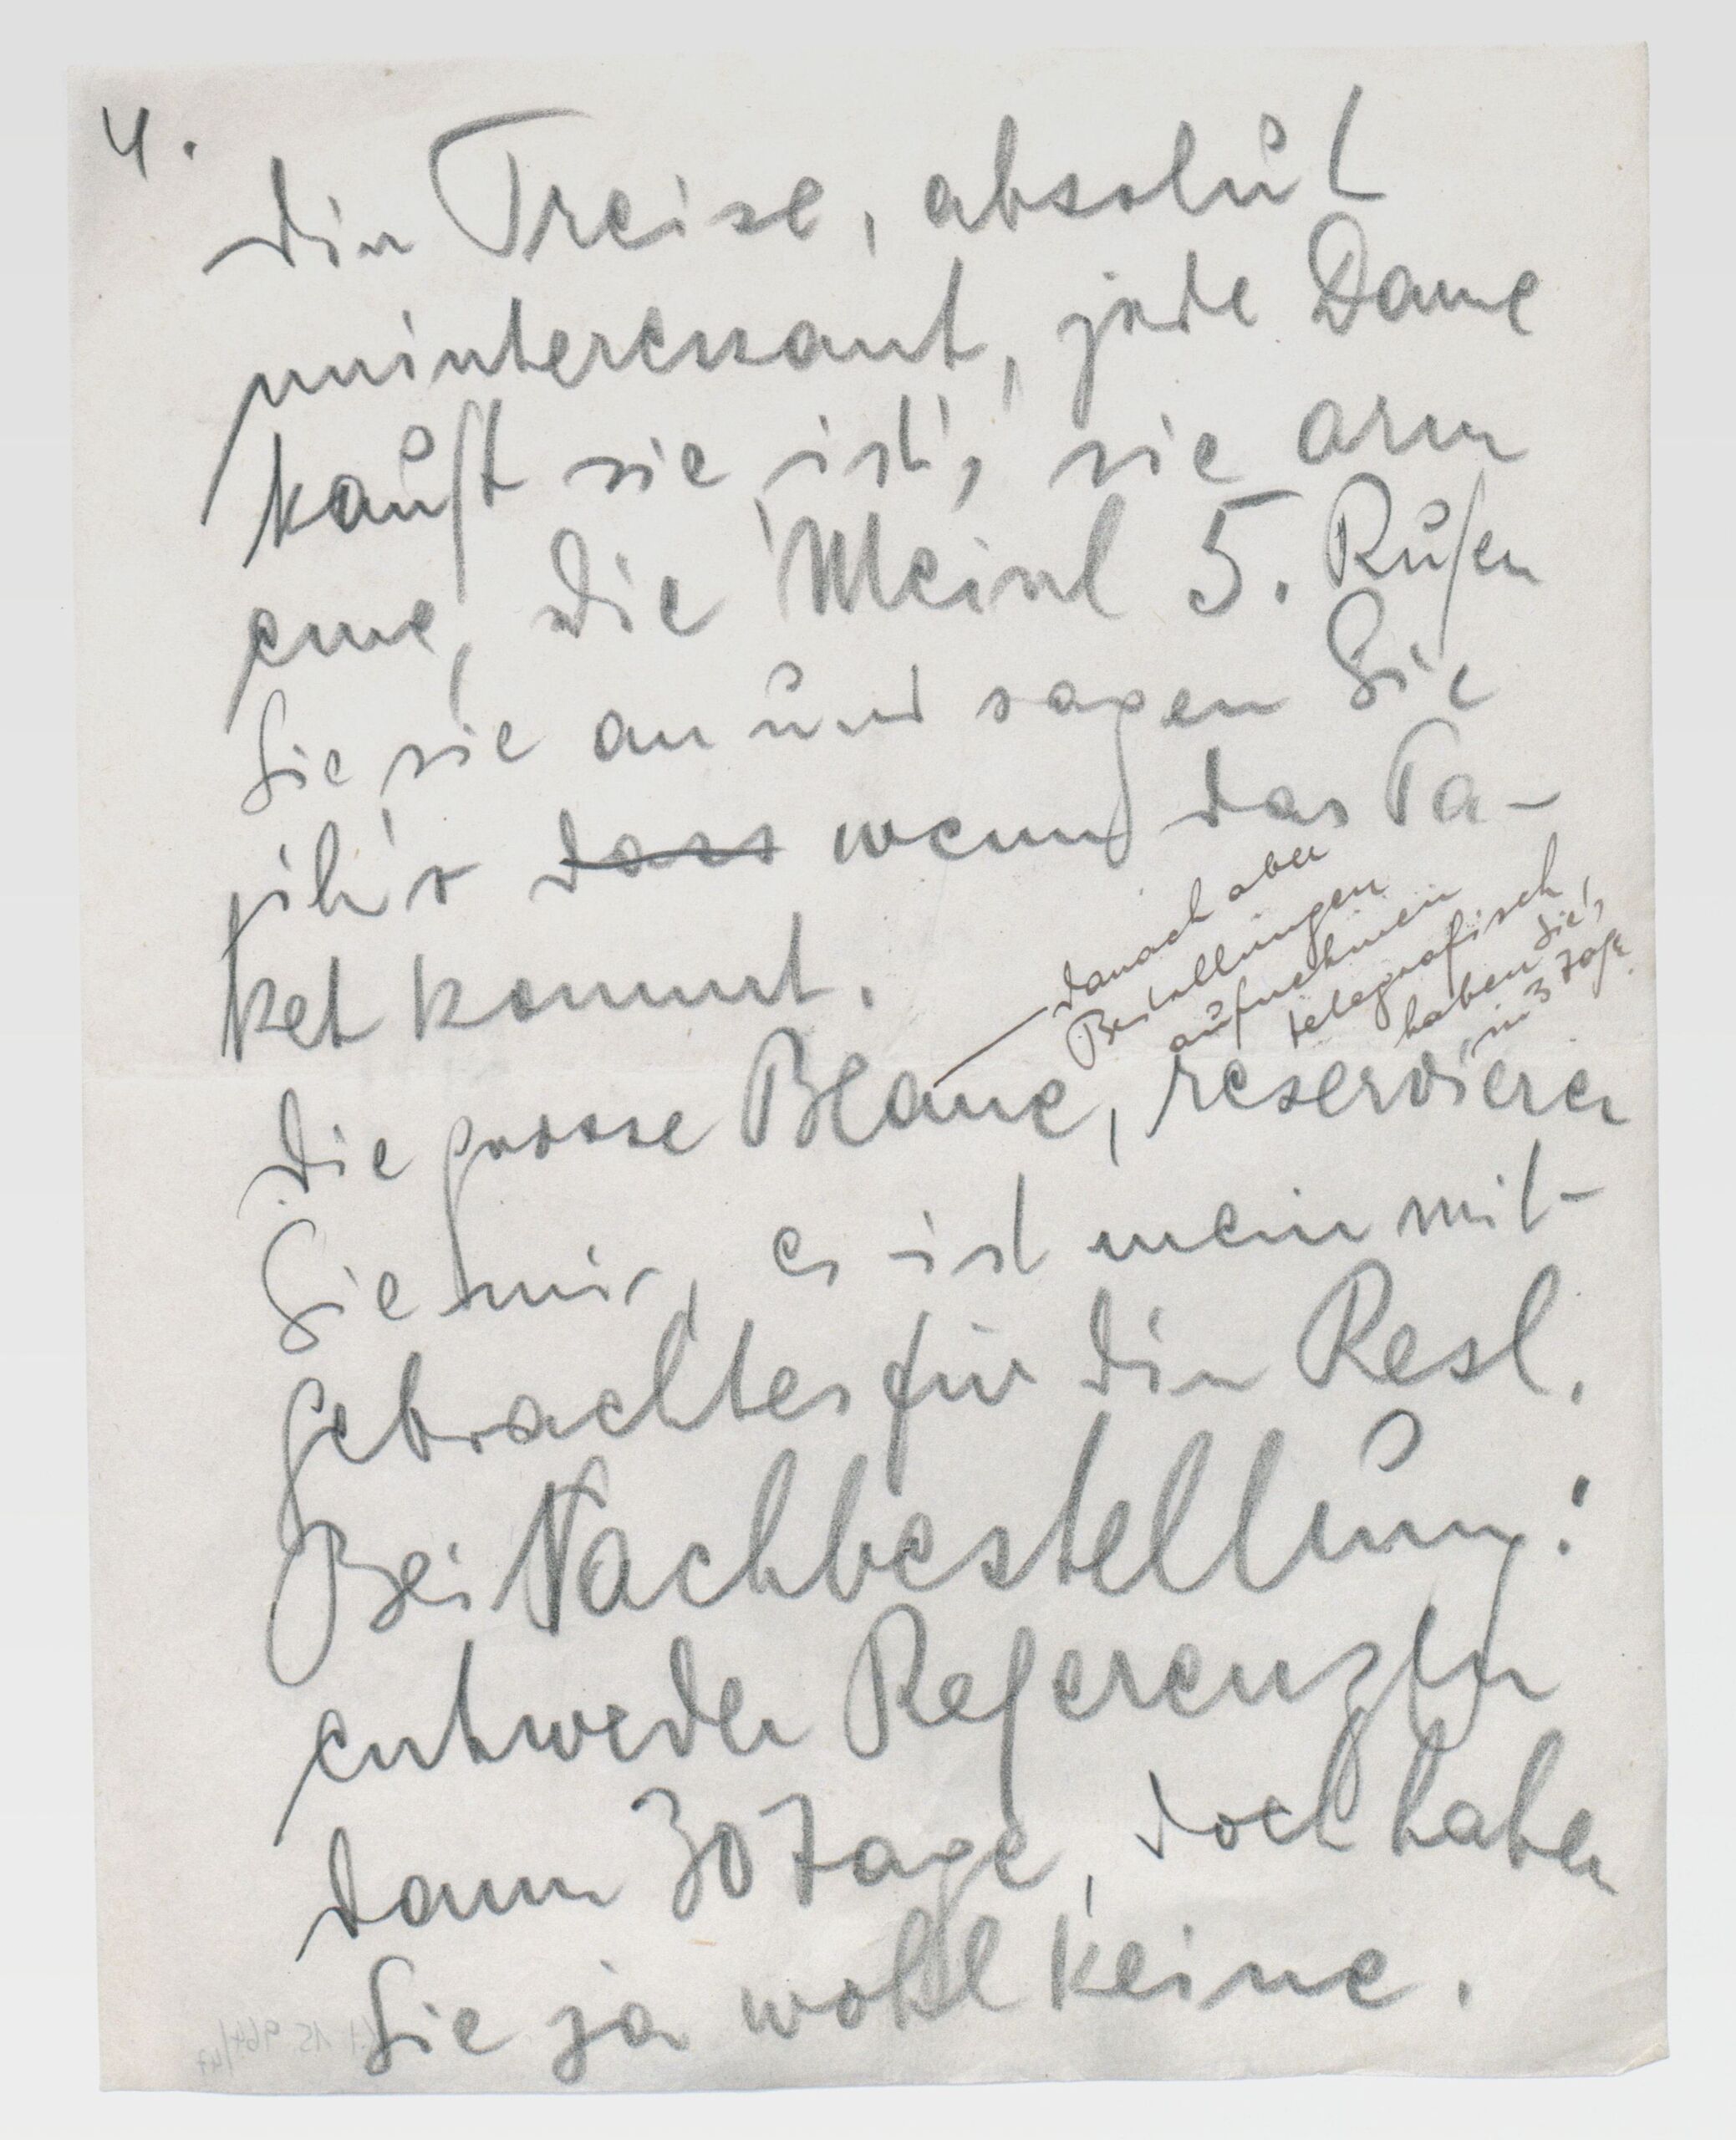 4.
die Preise, absolut
uninteressant, jede Dame
kauft sie ist's, sie arm
eine, die Meinl 5. Rufen
Sie sie an und sagen Sie
ihr dass wenn das Pa-
ket kommt.
— danach aber
Bestellungen
aufnehmen
telegrafisch,
haben Sie's
in 3 Tage.
die grosse Blaue, reservieren
Sie mir, es ist mein mit-
gebrachtes für die Resl.
Bei Nachbestellung:
entweder Referenzen
dann 30 Tage, doch haben
Sie ja wohl keine.